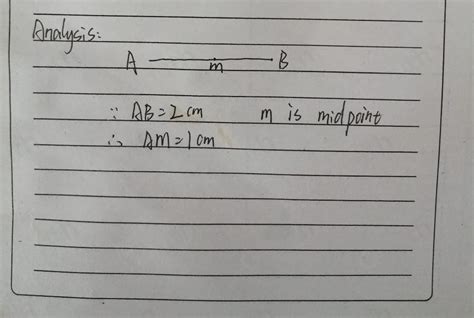 Analysis:
A m B
∵ AB=2cm m is midpoint
∴ AM=1cm